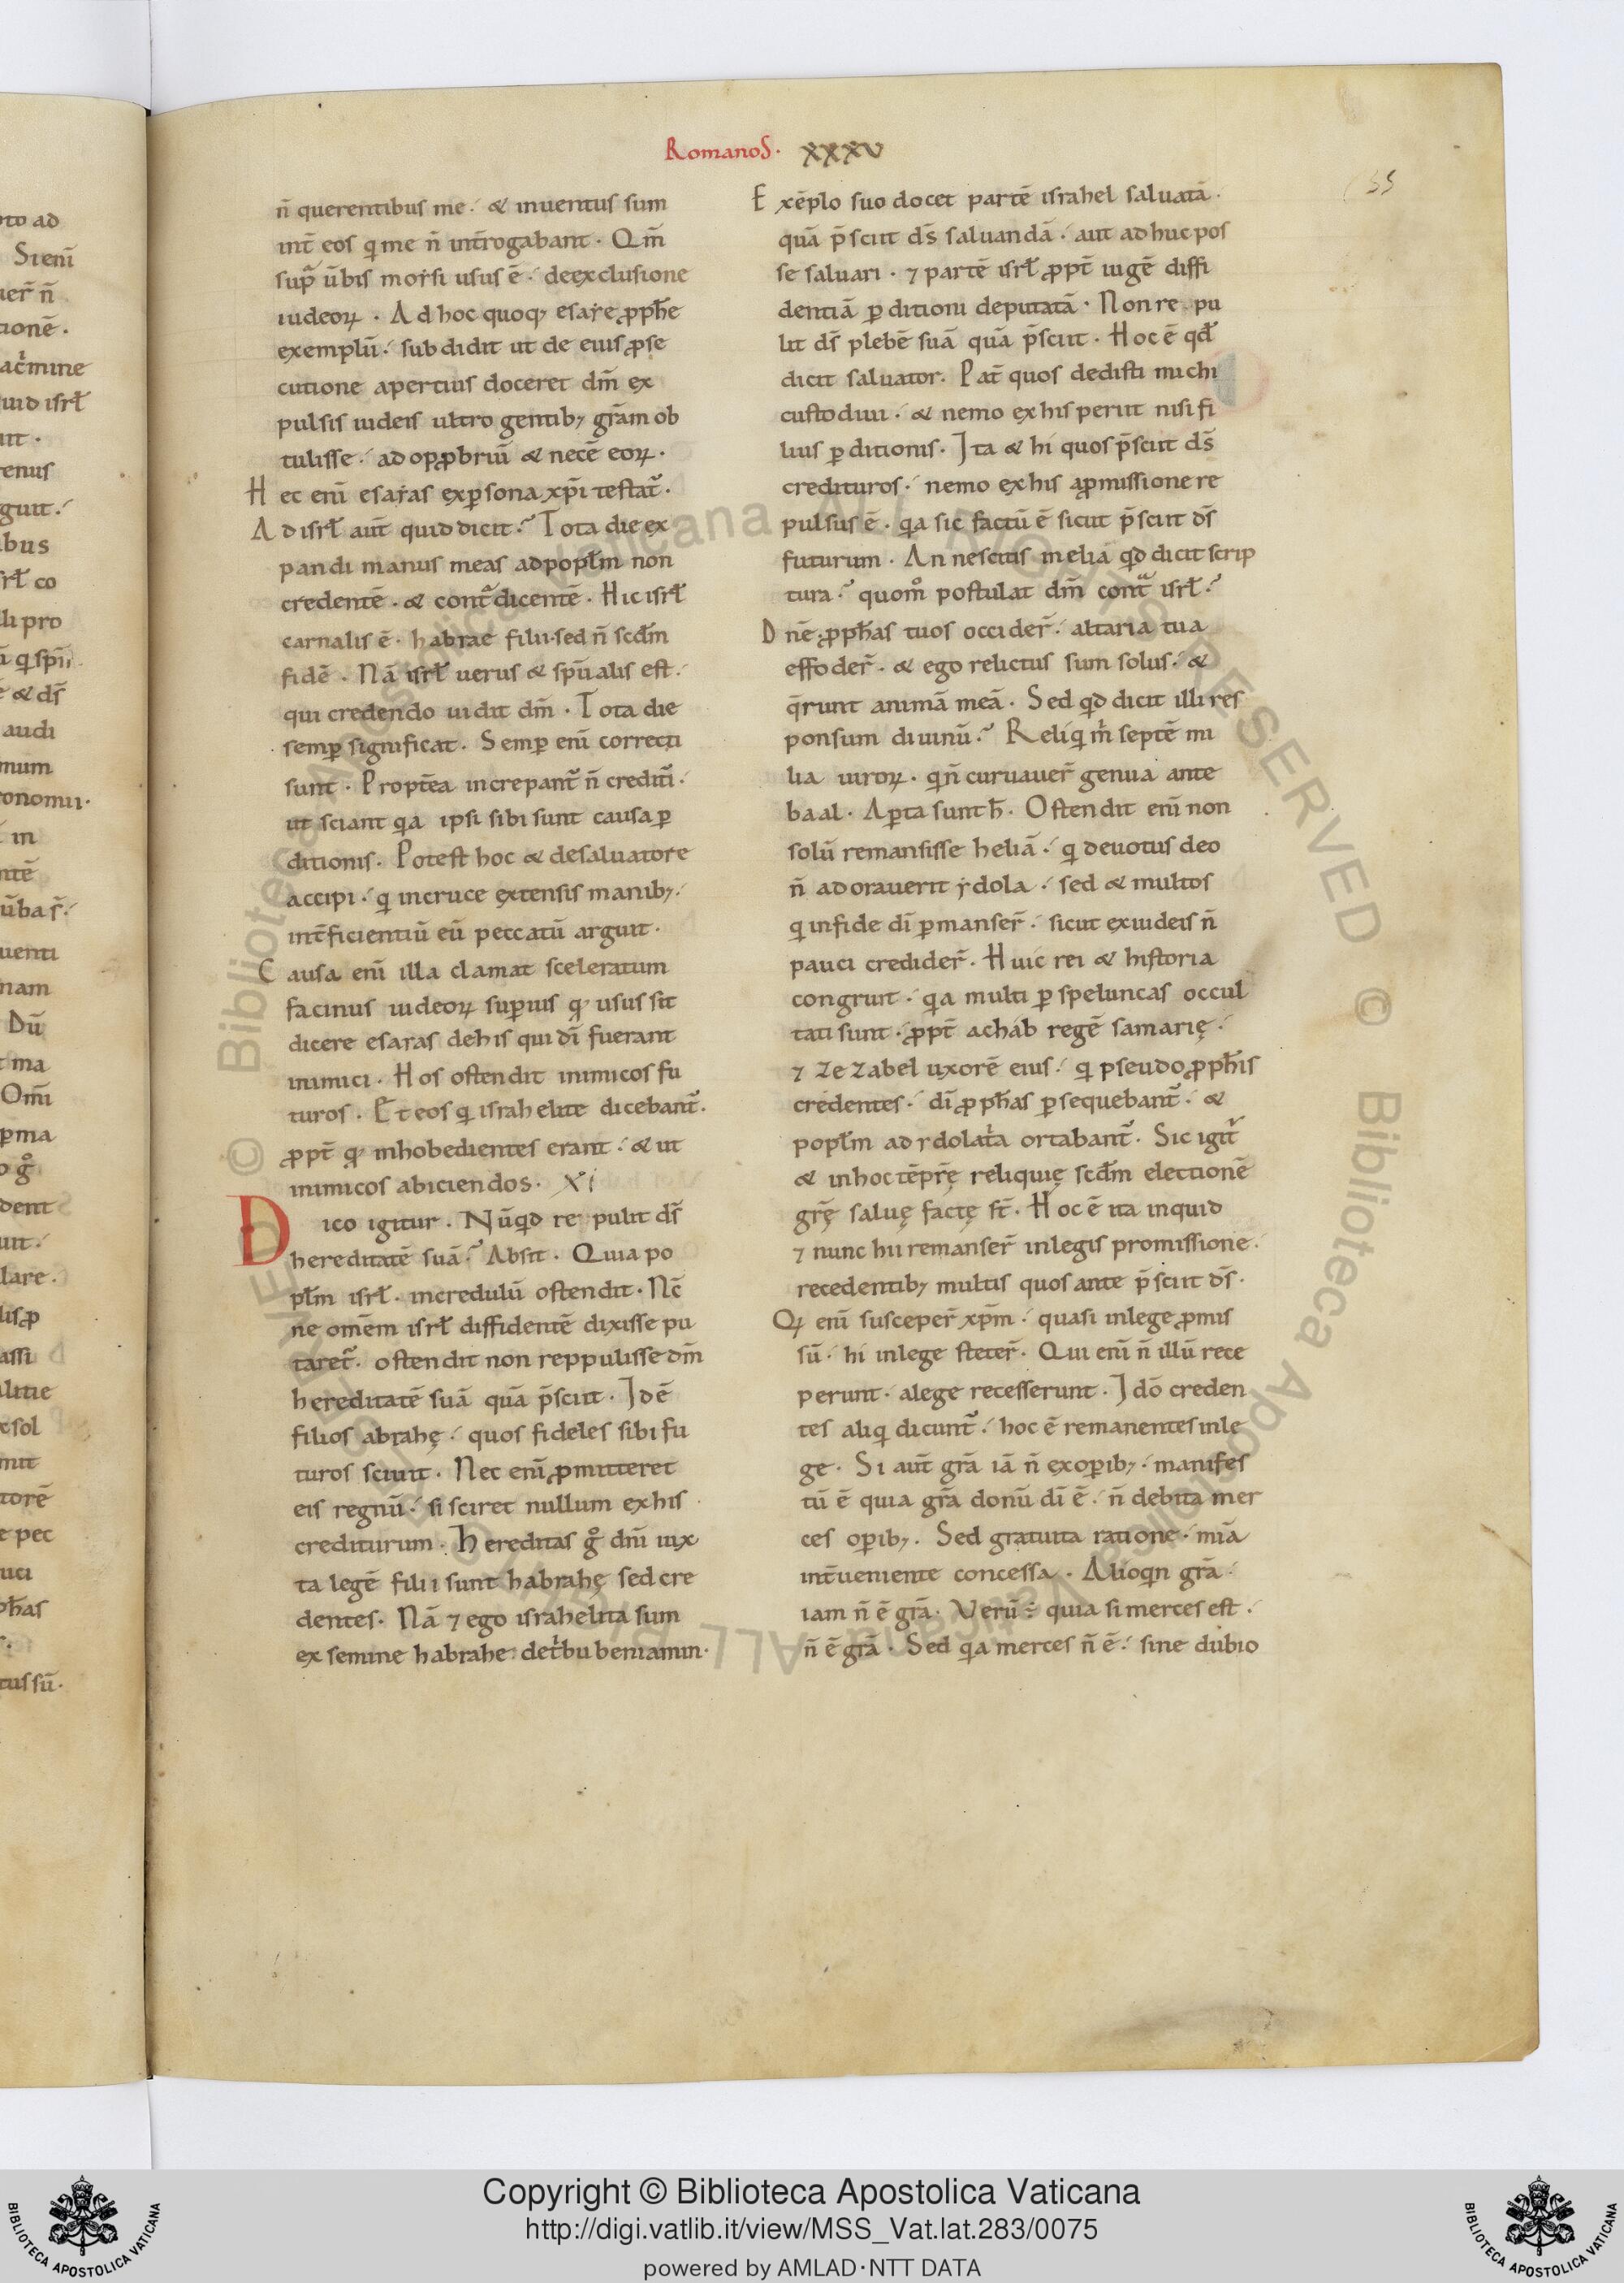 Romanos. XXXV
35
n̄ querentibus me. & inuentus sum
int̄ eos q me n̄ int̄rogabant. Qm̄
sup̄ ūbis moẏsi usus ē. deexclusione
iudeoꝝ. Ad hoc quoq; esaẏe ꝓph̄e
exemplū. subdidit ut de eius ꝓse
cutione apertius doceret dm̄ ex
pulsis iudeis ultro gentib; grām ob
tulisse. ad opꝓbriū & necē eoꝝ.
Hec enī esaẏas exꝑsona xp̄i testat᷑.
Ad isrł aut̄ quid dicit? Tota die ex
pandi manus meas ad popłm non
credentē. & contᵃdicentē. Hic isrł
carnalis ē. habrae filii. sed n̄ scd̄m
fidē. Nā isrł uerus & spūalis est.
qui credendo uidit dm̄. Tota die
semꝑ significat. Semꝑ enī correcti
sunt. Propt̄ea increpant᷑ n̄ credit᷑i.
ut sciant qa ipsi sibi sunt causa ꝑ
ditionis. Potest hoc & desaluatore
accipi. q incruce extensis manib;.
int̄ficientiū eū peccatū arguit.
Causa enī illa clamat sceleratum
facinus iudeoꝝ suꝑius q; usus sit
dicere esaẏas dehis qui dī fuerant
inimici. Hos ostendit inimicos fu
turos. Et eos q israhelite dicebant᷑.
ꝓpt̄ q; inhobedientes erant. & ut
inimicos abiciendos. XI
Dico igitur. Nūqd repulit ds̄
hereditatē suā? Absit. Quia po
płm isrł. incredulū ostendit. Nē
ne om̄em isrł diffidentē dixisse pu
taret᷑. ostendit non reppulisse dm̄
hereditatē suā quā p̄sciit. Idē
filios abrahę. quos fideles sibi fu
turos sciuit. Nec enī ꝓmitteret
eis regnū. si sciret nullum exhis
crediturum. Hereditas gͦ dn̄i iux
ta legē filii sunt habrahę sed cre
dentes. Nā ⁊ ego israhelita sum
ex semine habrahe. det᷑bu beniamin.
Exēplo suo docet partē israhel saluatā.
quā p̄sciit ds̄ saluandā. aut adhuc pos
se saluari. ⁊ partē isrł ꝓpt̄ iugē diffi
dentiā ꝑditioni deputatā. Non re pu
lit ds̄ plebē suā quā p̄sciit. Hoc ē qd̄
dicit saluator. Pat̄ quos dedisti michi
custodiui. & nemo exhis periit nisi fi
lius ꝑditionis. Ita & hi quos p̄sciit ds̄
credituros. nemo exhis aꝓmissione re
pulsus ē. qa sic factū ē sicut p̄sciit ds̄
futurum. An nescitis inelia qd dicit scrip
tura? quom̊ postulat dm̄ contᵃ isrł?
Dn̄e ꝓph̄as tuos occider̄. altaria tua
effoder̄. & ego relictus sum solus. &
q̄runt animā meā. Sed qd dicit illi res
ponsum diuinū? Reliq m̍ septē mi
lia uiroꝝ. q n̄ curuauer̄ genua ante
baal. Aꝑta sunt h̄. Ostendit enī non
solū remansisse heliā. q deuotus deo
n̄ adorauerit ẏdola. sed & multos
q infide dī ꝑmanser̄. sicut exiudeis n̄
pauci credider̄. Huic rei & historia
congruit. qa multi ꝑ speluncas occul
tati sunt. ꝓpt̄ achab regē samarię.
⁊ zezabel uxorē eius. q pseudoꝓph̄is
credentes. dī ꝓph̄as ꝑsequebant᷑. &
popłm ad ẏdolat᷑a ortabant᷑. Sic igit᷑
& inhoc tēpr̄ę reliquię scd̄m electionē
gr̄ę saluę factę st̄. Hoc ē ita inquid
⁊ nunc hii remanser̄ inlegis promissione.
recedentib; multis quos ante p̄sciit ds̄.
Qꝝ enī susceper̄ xp̄m. quasi inlege ꝓmis
sū. hi inlege steter̄. Qui enī n̄ illū rece
perunt. alege recesserunt. Idō creden
tes aliq dicunt᷑. hoc ē remanentes inle
ge. Si aut̄ grā iā n̄ exoꝑib;. manifes
tū ē quia grā donū dī ē. n̄ debita mer
ces oꝑib;. Sed gratuita ratione. mīa
int̄ueniente concessa. Alioqn grā
iam n̄ ē grā. Verū quia si merces est.
n̄ ē grā. Sed qa merces n̄ ē. sine dubio
Copyright © Biblioteca Apostolica Vaticana
http://digi.vatlib.it/view/MSS_Vat.lat.283/0075
powered by AMLAD·NTT DATA